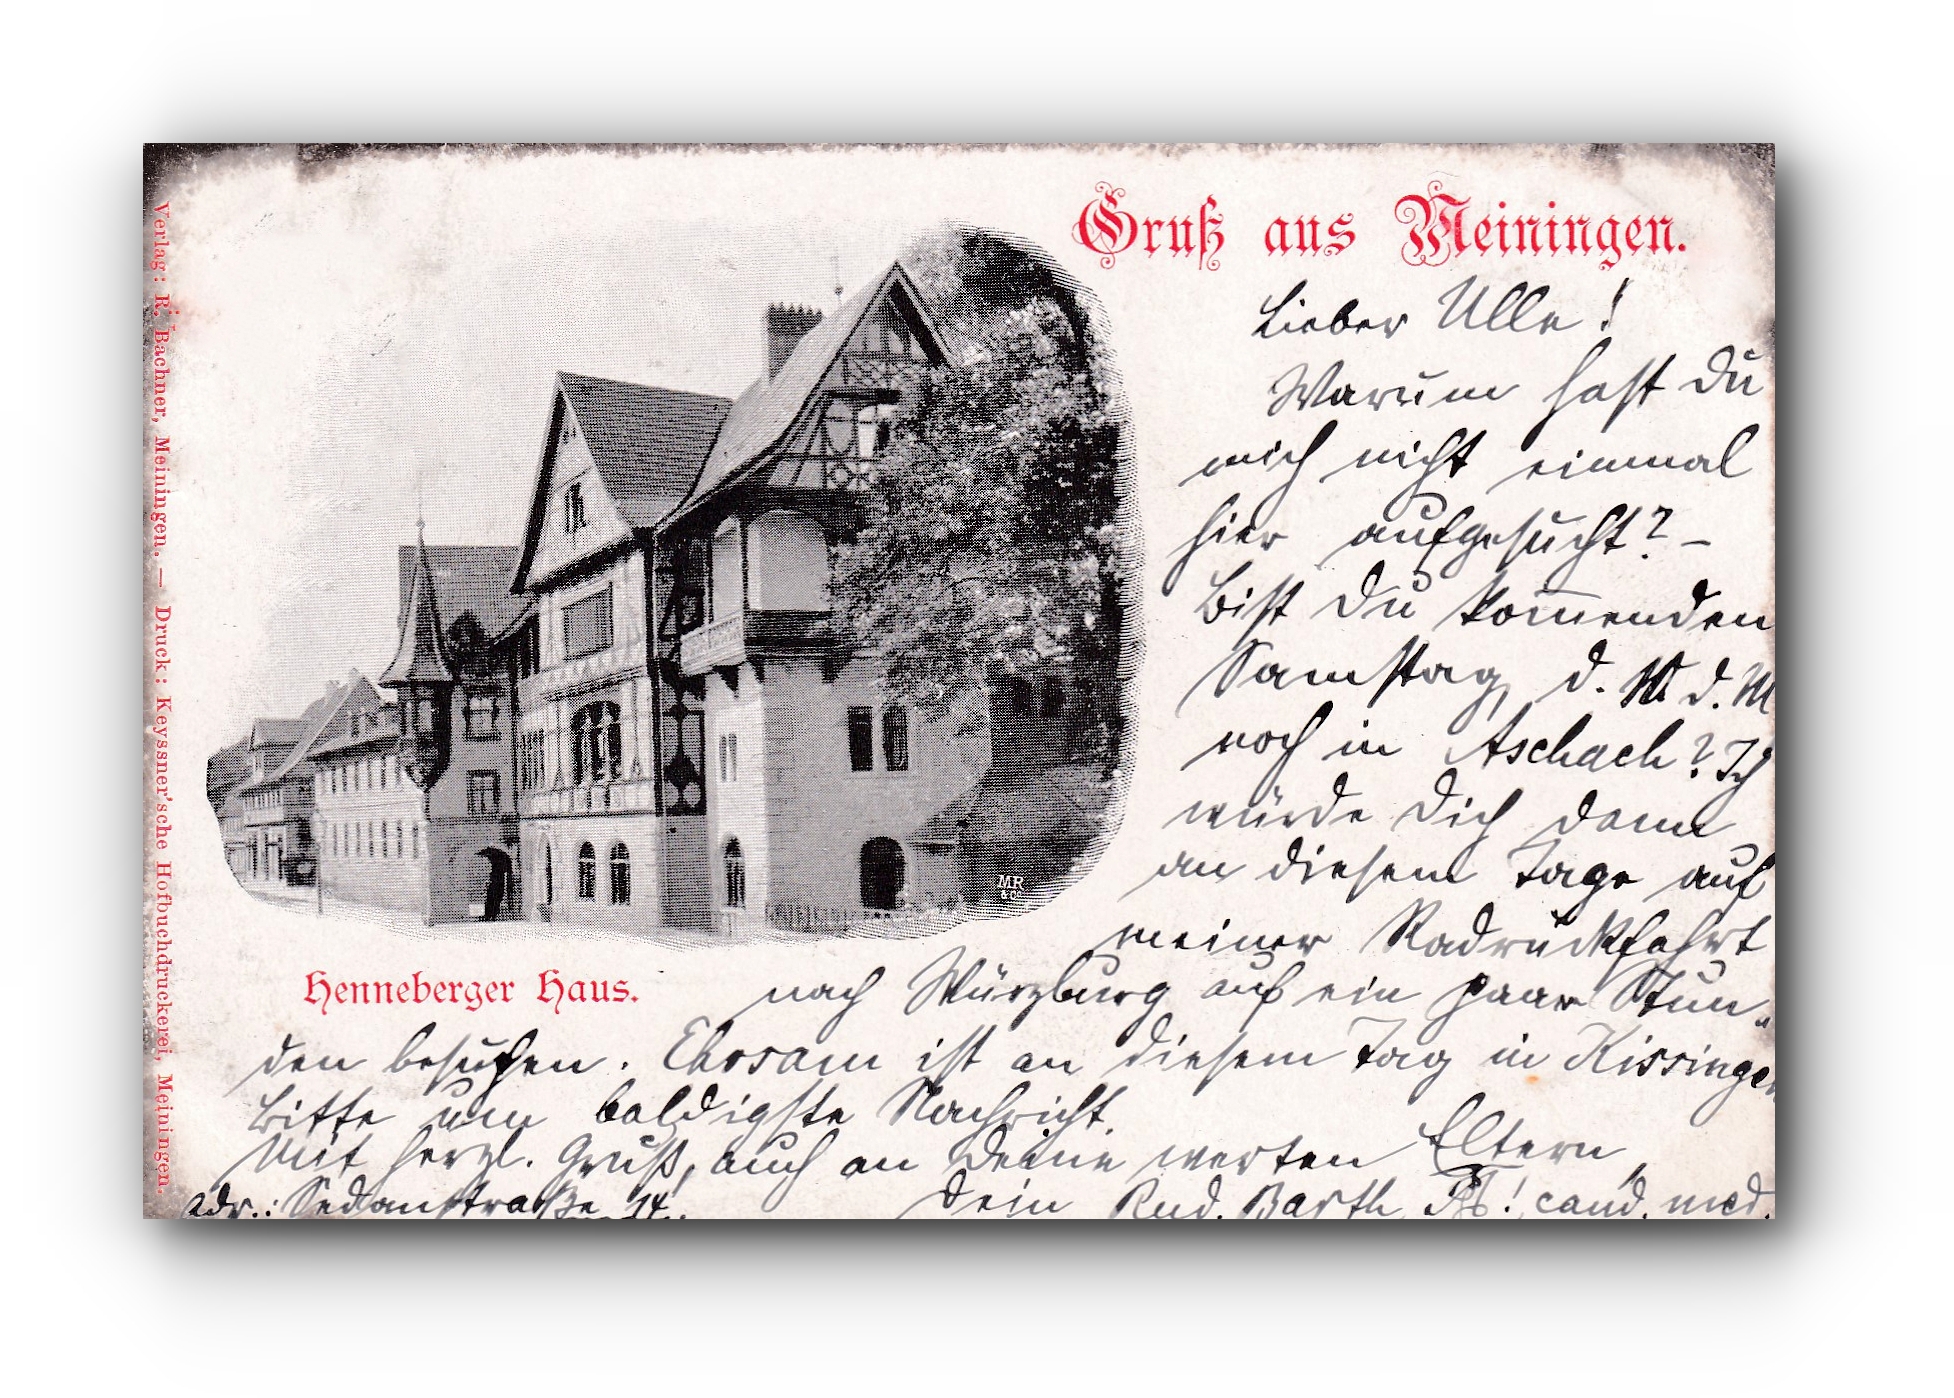 Gruß aus Meiningen.
Lieber Ulle!
Warum hast Du
mich nicht einmal
hier aufgesucht? –
Bist Du kommenden
Samstag, d. d. M
noch in Aschach? Ich
würde Dich dann
an diesem Tage auf
meiner Radrückfahrt
nach Würzburg auf ein paar Stun-
den besuchen. ist an diesem Tag in Kissingen
Bitte um baldigste Nachricht.
Mit herzl. Gruß, auch an Deine werten Eltern
Dein Rud. Barth cand. med.
Adr.: Sedanstraße 14.
Henneberger Haus.
MR
& Co
Verlag: R. Bachner, Meiningen. — Druck: Keyssner'sche Hofbuchdruckerei, Meiningen.